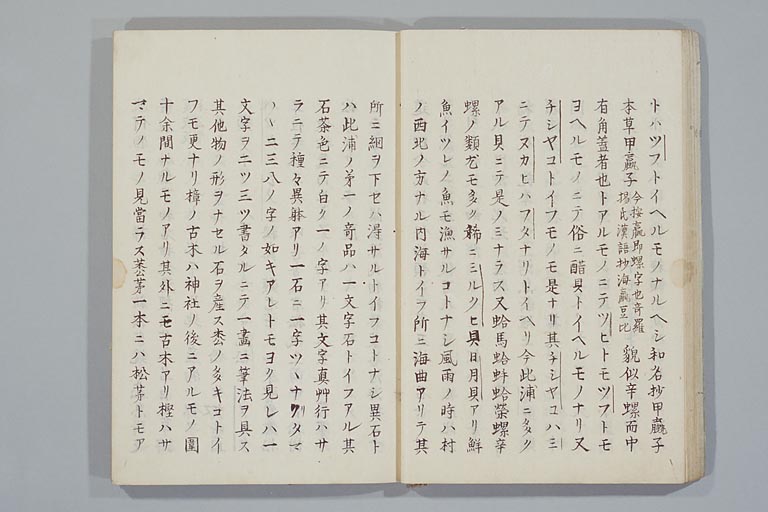 トハツフトイヘルモノナルヘシ和名抄甲蠃子
本草甲蠃子
今按蠃即螺字也音羅
楊氏漢語抄海蠃豆比
貌似辛螺而中
有角蓋者也トアルモノニテツヒトモツフトモ
ヨヘルモノニテ俗ニ醋貝トイヘルモノナリ又
チシヤコトイフモノモ是ナリ其チシヤコハミ
ニテヌカヒハフタナリトイヘリ今此浦ニ多ク
アル貝ニテ是ノミナラス又蛤馬蛤蚌蛤榮螺辛
螺ノ類尤モ多ク稀ニミルクヒ貝日月貝アリ鮮
魚イツレノ魚モ漁サルコトナシ風雨ノ時ハ村
ノ西北ノ方ナル内海トイフ所ニ海曲アリテ其
所ニ網ヲ下セハ得サルトイフコトナシ異石ト
ハ此浦ノ第一ノ奇品ハ一文字石トイフアル其
石茶色ニテ白ク一ノ字アリ其文字真艸行ハサ
ラニテ種々異躰アリ一石ニ一字ツヽナリタマ
ハヽ二三八ノ字ノ如キアレトモヨク見レハ一
文字ヲ二ツ三ツ書タルニテ一畫ニ筆法ヲ具ス
其他物ノ形ヲナセル石ヲ産ス柰ノ多キコトイ
フモ更ナリ樟ノ古木ハ神社ノ後ニアルモノ圍
十余間ナルモノアリ其外ニモ古木アリ樫ハサ
マテノモノ見當ラス柰茅一本ニハ松茅トモア